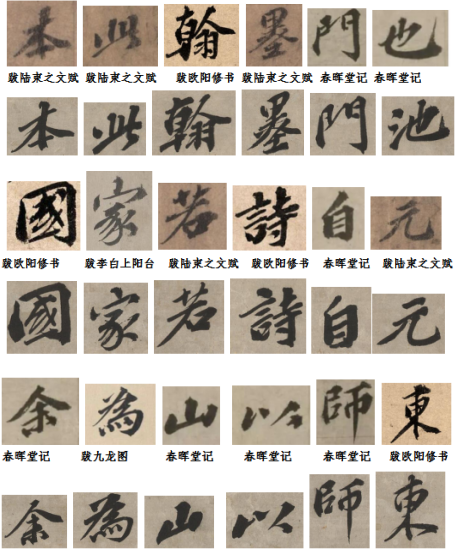 本 此 翰 墨 門 也
跋陆柬之文赋 跋陆柬之文赋 跋欧阳修书 跋陆柬之文赋 春晖堂记 春晖堂记
本 此 翰 墨 門 池
國 家 若 詩 自 元
跋欧阳修书 跋李白上阳台 跋陆柬之文赋 跋欧阳修书 春晖堂记 跋陆柬之文赋
國 家 若 詩 自 元
余 為 山 以 師 東
春晖堂记 跋九龙图 春晖堂记 春晖堂记 春晖堂记 跋欧阳修书
余 為 山 以 師 東